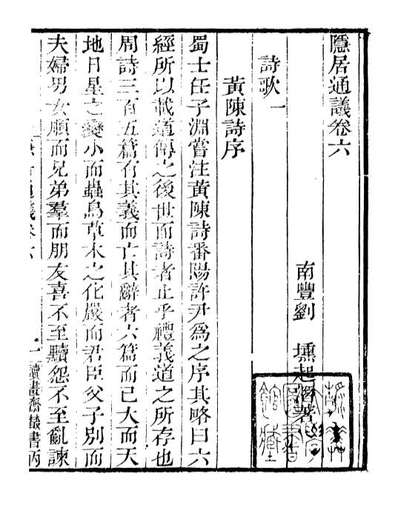 隱居通議卷六
南豐劉　壎起潛著
詩歌一
黃陳詩序
蜀士任子淵嘗注黃陳詩番陽許尹為之序其略曰六
經所以載道傳之後世而詩者止乎禮義道之所存也
周詩三百五篇有其義而亡其辭者六篇而已大而天
地日星之變小而蟲鳥草木之化嚴而君臣父子別而
夫婦男女順而兄弟羣而朋友喜不至黷怨不至亂諫
隱居通議卷六
一
讀畫齋叢書丙